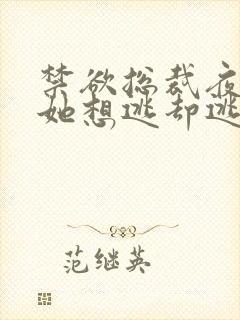 禁欲总裁夜
她想逃却逃
范继英